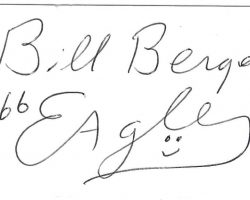 Bill Berge
66 EAgles